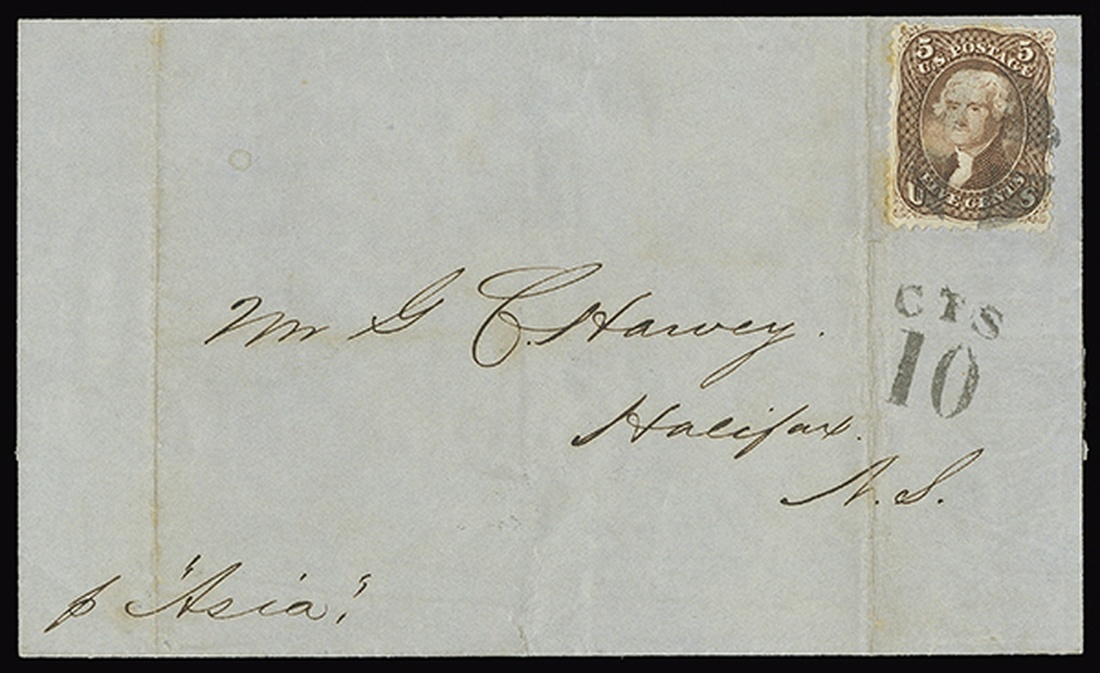 5 5
U.S. POSTAGE
FIVE CENTS
U S
CTS
10
Mr G C. Harvey.
Halifax.
N. S.
p "Asia",